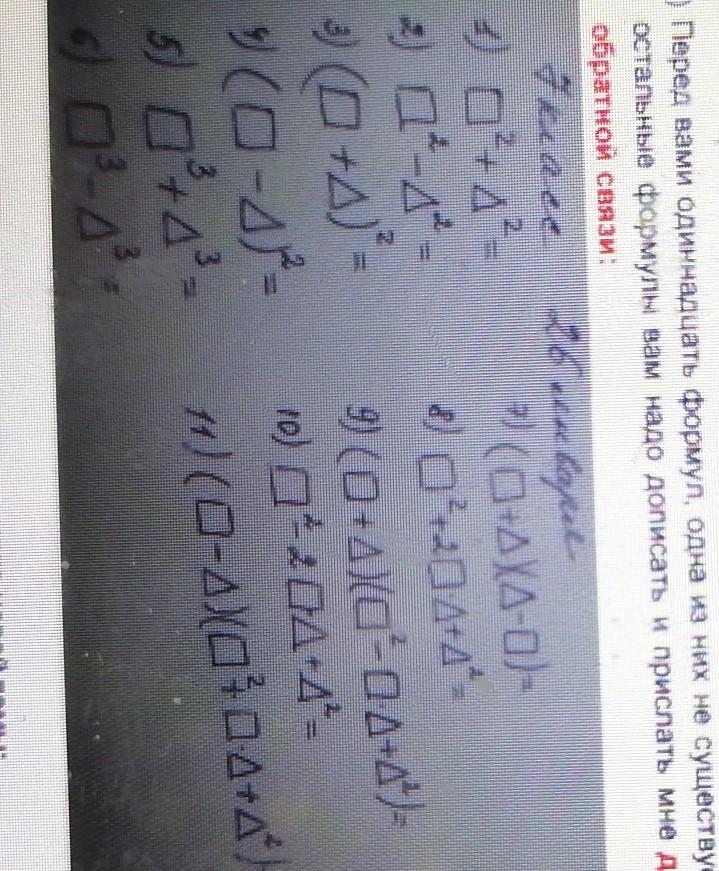 ) Перед вами одиннадцать формул, одна из них не существу
остальные формулы вам надо дописать и прислать мне д
обратной связи:
7 класс 26 января
1) □² + Δ² =
2) □² - Δ² =
3) (□ + Δ)² =
4) (□ - Δ)² =
5) □³ + Δ³ =
6) □³ - Δ³ =
7) (□+Δ)(Δ-□)=
8) □²+2□·Δ+Δ²=
9) (□+Δ)(□²-□·Δ+Δ²)=
10) □²-2□Δ+Δ²=
11) (□-Δ)(□²+□·Δ+Δ²)